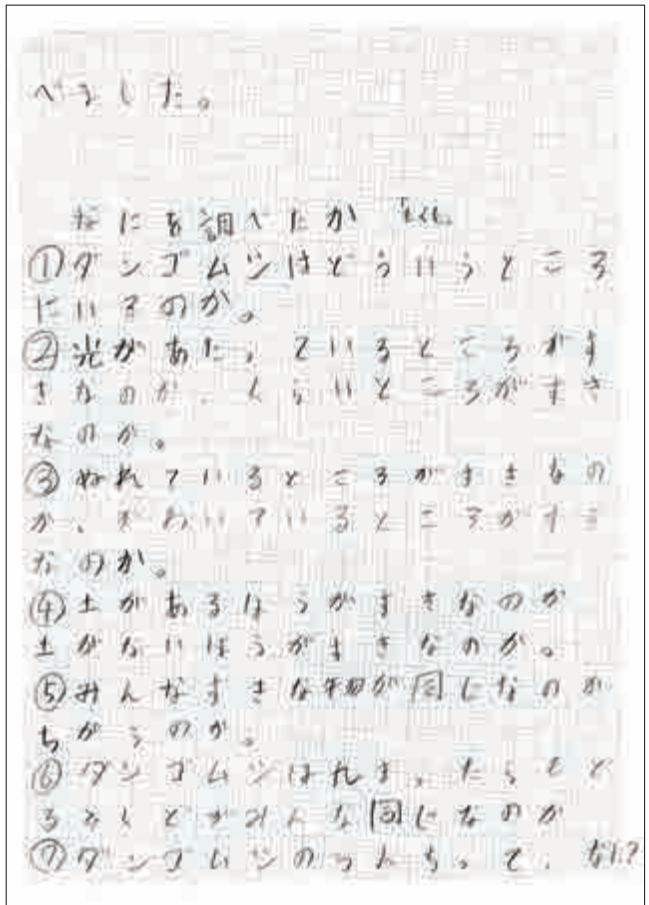 べました。
なにを調べたか
①ダンゴムシはどういうところ
にいるのか。
②光があたっているところがす
きなのか、くらいところがすき
なのか。
③ぬれているところがすきなの
か、かわいているところがすき
なのか。
④土があるほうがすきなのか
土がないほうがすきなのか。
⑤みんなすきな物が同じなのか
ちがうのか。
⑥ダンゴムシは
みんな同じなのか
⑦ダンゴムシのうんちって、なに?